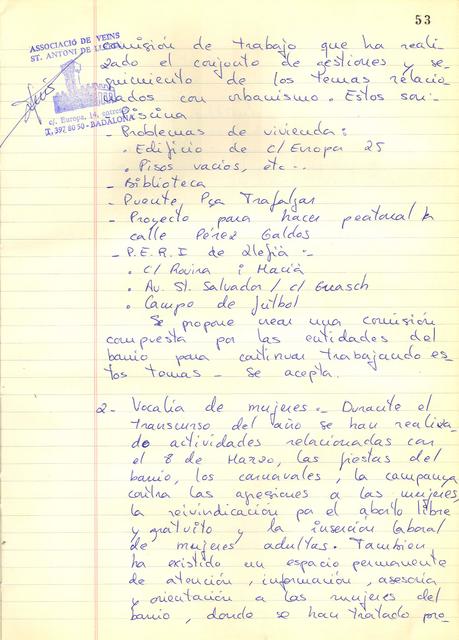 53
ASSOCIACIÓ DE VEINS
ST. ANTONI DE LLEFIÀ
c/. Europa, 14, entres.
T. 397 80 50 - BADALONA
Comisión de trabajo que ha reali-
zado el conjonto de gestiones y se-
guimiento de los temas relacio-
nados con urbanismo. Estos son:-
- Piscina
- Problemas de vivienda:
• Edificio de c/ Europa 25
• Pisos vacíos, etc...
- Biblioteca
- Puente Pça Trafalgar
- Proyecto para hacer peatonal la
calle Pérez Galdos
- P.E.R.I de Llefià :-
• C/ Rovira i Macià
• Av. St. Salvador / c/ Guasch
• Campo de fútbol
Se propone crear una comisión
compuesta por las entidades del
barrio para continuar trabajando es-
tos temas - Se acepta.
2- Vocalía de mujeres.- Durante el
transcurso del año se han realiza-
do actividades relacionadas con
el 8 de Marzo, las fiestas del
barrio, los carnavales, la campaña
contra las agresiones a las mujeres,
la reivindicación por el aborto libre
y gratuito y la inserción laboral
de mujeres adultas. Tambien
ha existido un espacio permanente
de atención, información, asesoria
y orientación a las mujeres del
barrio, donde se han tratado pro-